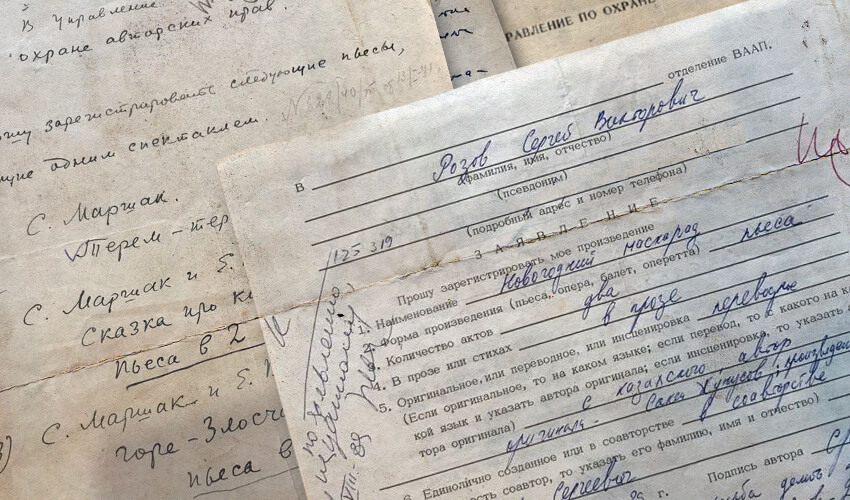 В Управление
охране авторских прав.
зарегистрировать следующие пьесы,
одним спектаклем.
С. Маршак.
Терем-тер
С. Маршак и Е.
Сказка про к
пьеса в 2
С. Маршак и Е.
горе-Злосч
пьеса в
РАВЛЕНИЕ ПО ОХРАНЕ
отделение ВААП.
В
Розов Сергей Викторович
(фамилия, имя, отчество)
(псевдоним)
(подробный адрес и номер телефона)
125319
ЗАЯВЛЕНИЕ
Прошу зарегистрировать мое произведение
Наименование Новогодний маскарад
Форма произведения (пьеса, опера, балет, оперетта) пьеса
Количество актов два
4. В прозе или стихах в прозе
5. Оригинальное, или переводное, или инсценировка переводное
(Если оригинальное, то на каком языке; если перевод, то с какого на к
кой язык и указать автора оригинала; если инсценировка, то указать а
тора оригинала) с казахского, автор
оригинала - Сакен Жунусов; произведен
6. Единолично созданное или в соавторстве в соавторстве
есть соавтор, то указать его фамилию, имя и отчество)
Сергеевич
Подпись автора
по заявлению
VIII-89